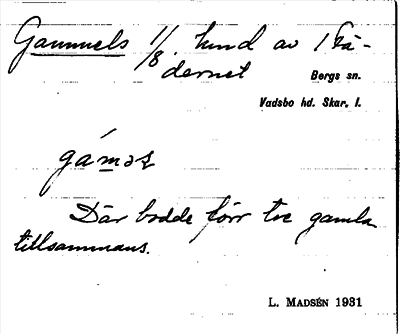 Gammels 1/8. hmd av 1 Fä-
dernet
Bergs sn.
Vadsbo hd. Skar. l.
gámas
Där bodde förr tre gamla
tillsammans.
L. MADSÉN 1931